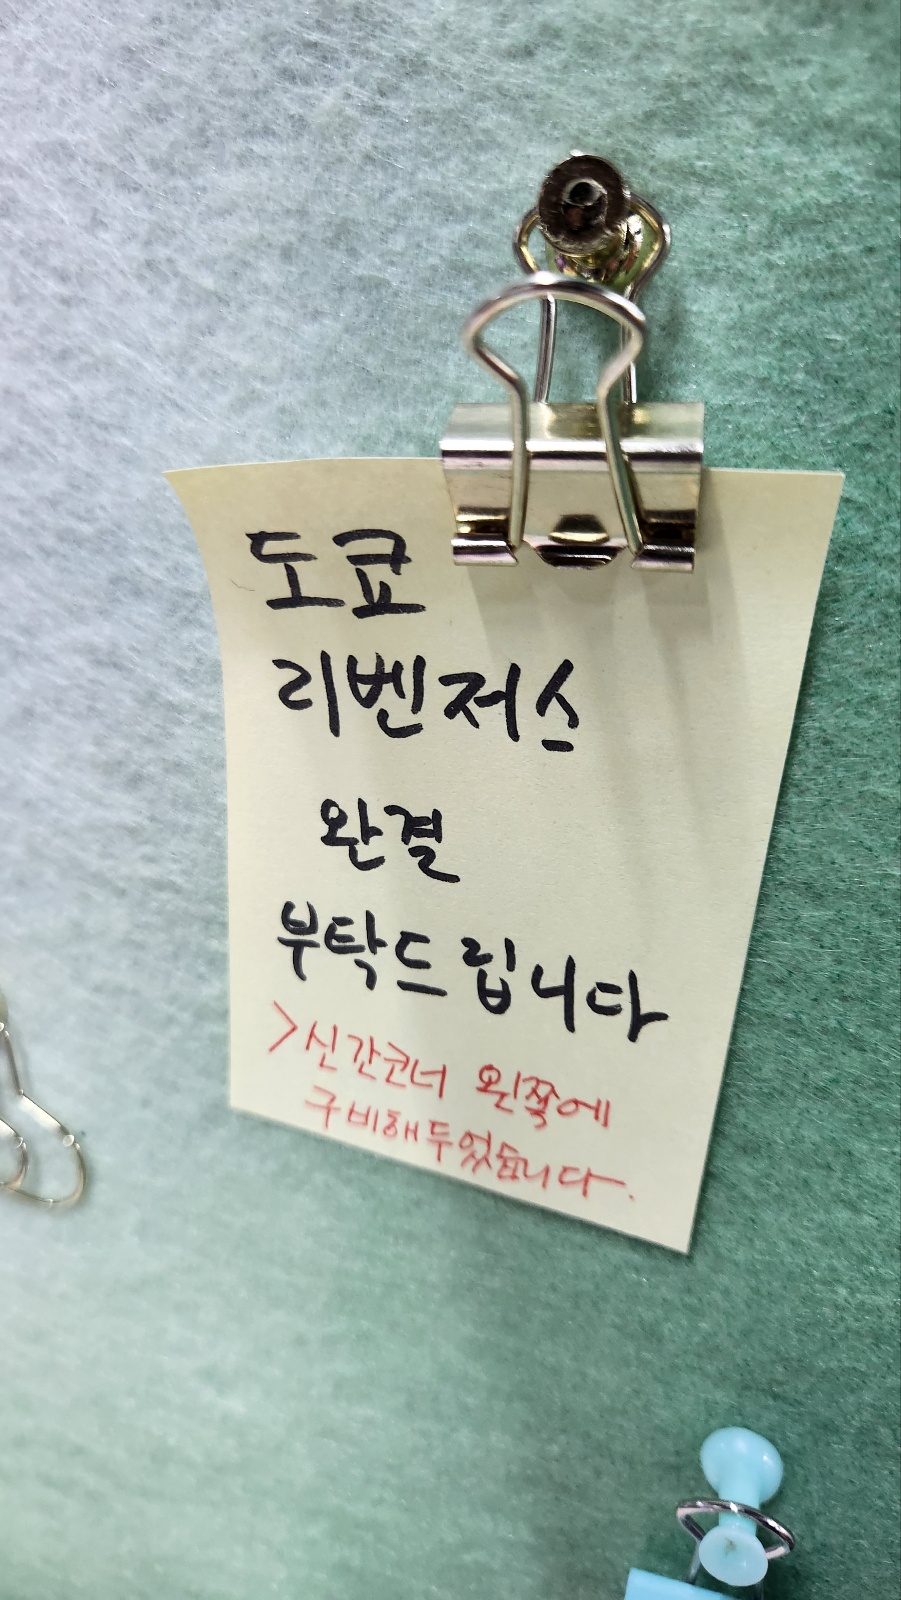 도쿄
리벤저스
완결
부탁드립니다
>신간코너 왼쪽에
구비해두었습니다.